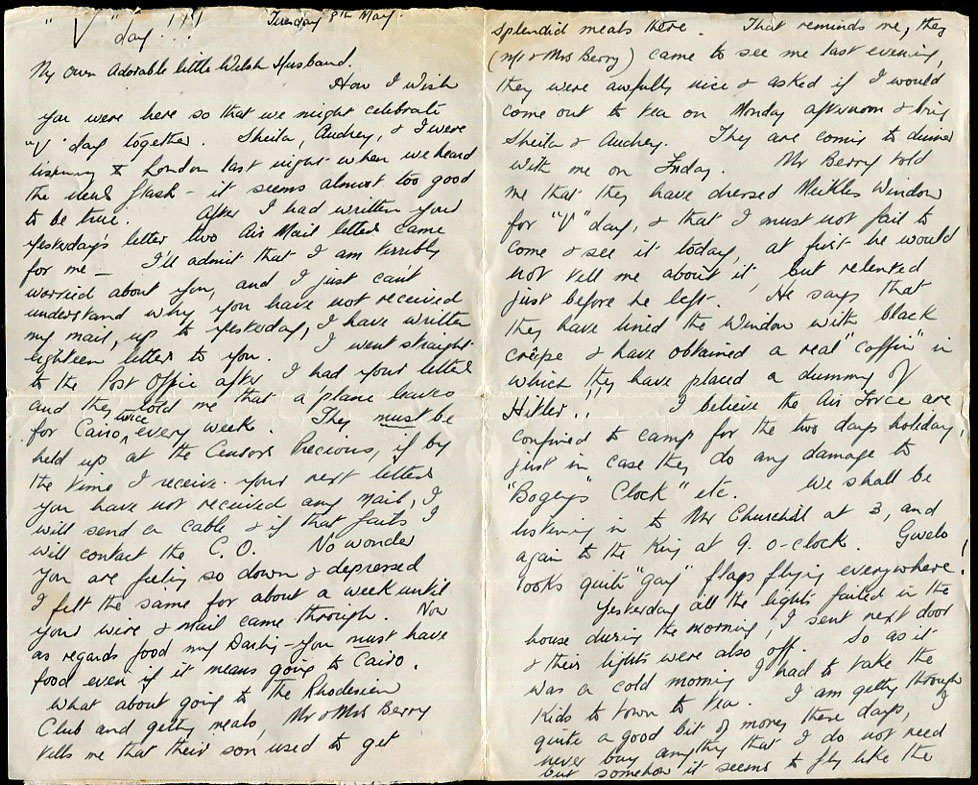 "V" !!! Tuesday 8th May.
day!!!
My own Adorable little Welsh Husband.
How I wish
you were here so that we might celebrate
"V" day together. Sheila, Audrey, & I were
listening to London last night when we heard
the news flash - it seems almost too good
to be true. After I had written your
yesterday's letter two Air Mail letters came
for me - I'll admit that I am terribly
worried about you, and I just can't
understand why you have not received
my mail, up to yesterday, I have written
eighteen letters to you. I went straight
to the Post Office after I had your letters
and they told me that a plane leaves
for Cairo, twice every week. They must be
held up at the Censors Precious, if by
the time I receive your next letters
you have not received any mail, I
will send a cable & if that fails I
will contact the C.O. No wonder
you are feeling so down & depressed
I felt the same for about a week until
your wire & mail came through. Now
as regards food my Darling - you must have
food even if it means going to Cairo.
What about going to the Rhodesian
Club and getting meals, Mr & Mrs Berry
tells me that their son used to get
splendid meals there. That reminds me, they
(Mr & Mrs Berry) came to see me last evening,
they were awfully nice & asked if I would
come out to tea on Monday afternoon & bring
Sheila & Audrey. They are coming to dinner
with me on Friday. Mr Berry told
me that they have dressed Meikles Window
for "V" day, & that I must not fail to
come & see it today, at first he would
not tell me about it, but relented
just before he left. He says that
they have lined the Window with black
crêpe & have obtained a real "coffin" in
which they have placed a dummy of
Hitler!! I believe the Air Force are
confined to camp for the two days holiday,
just in case they do any damage to
"Bogeys" Clock" etc. We shall be
listening in to Mr Churchill at 3, and
again to the King at 9. o-clock. Gwelo
looks quite "gay" flags flying everywhere!
Yesterday all the lights failed in the
house during the morning, I sent next door
& their lights were also off. So as it
was a cold morning I had to take the
Kids to town to tea. I am getting through
quite a good bit of money these days,
never buy anything that I do not need
but somehow it seems to fly like the